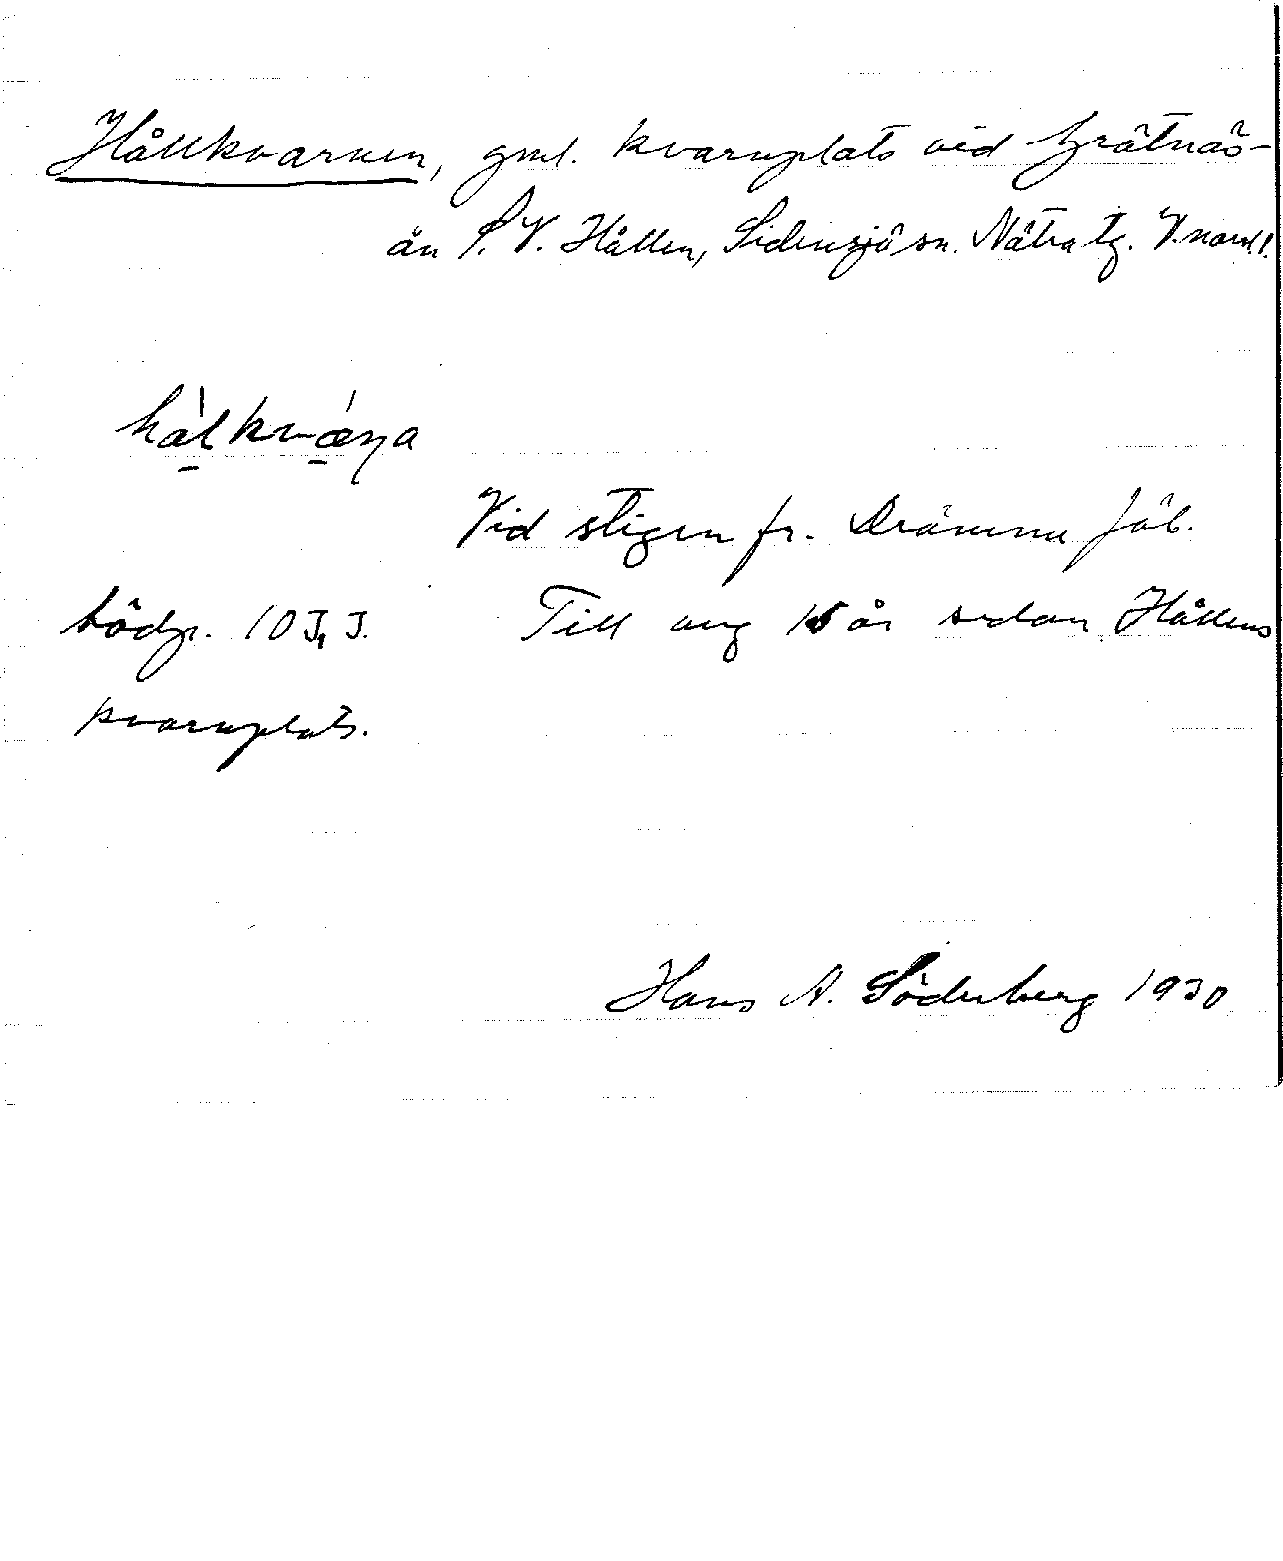 Hållkvarnen, gml. kvarnplats vid Grätnäs-
ån S.V. Hållen, Sidensjö sn. Nätra tg. V.norrl.l.
Vid stigen fr. Drömme fäb.
södr. 10 J, J. Till ung 15 år sedan Hållens
kvarnplats.
Hans A. Söderberg 1930